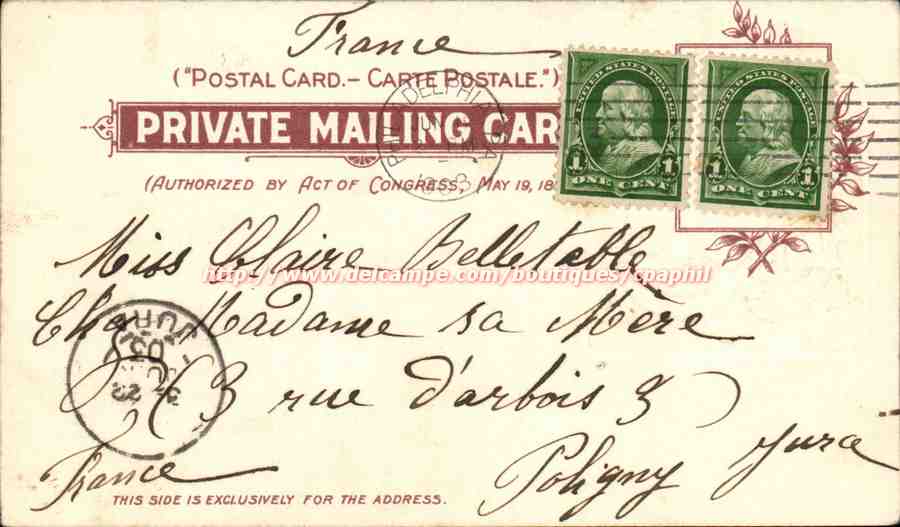 France
("POSTAL CARD.– CARTE POSTALE.")
PRIVATE MAILING CAR
(AUTHORIZED BY ACT OF CONGRESS, MAY 19, 18
PHILADELPHIA PA
1903
UNITED STATES POSTAGE
1 1
ONE CENT
UNITED STATES POSTAGE
1 1
ONE CENT
Miss Claire Belletable
http://www.delcampe.com/boutiques/cpaphil
Chez Madame sa Mère
JURA
03
(3 rue d'arbois 3)
Poligny Jura
France
THIS SIDE IS EXCLUSIVELY FOR THE ADDRESS.